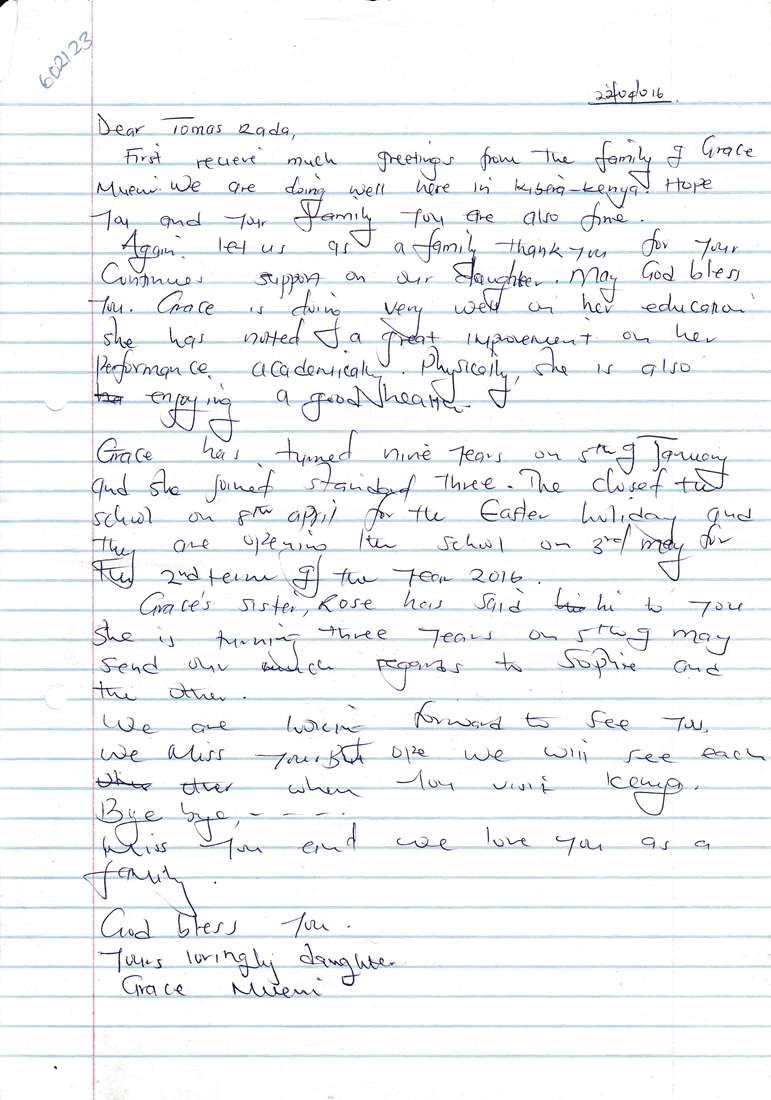 602123
22/04/016
Dear Tomas Rada,
First recieve much greetings from the family of Grace
Mueni. We are doing well here in Kibera-Kenya. Hope
You and your family you are also fine.
Again let us as a family thank you for your
Continues support on our daughter. May God bless
You. Grace is doing very well in her education
she has noted a great improvement on her
performance academically. Physically, she is also
enjoying a good health.
Grace has turned nine years on 5th of January
and she joined standard three. The closed the
school on 8th april for the Easter holiday and
they are opening the school on 3rd/may for
the 2nd term of the year 2016.
Grace's sister, Rose has said hi to you
she is turning three years on 5th of may
send our much regards to Sophie and
the other.
We are looking forward to see you,
We Miss you. But ope we will see each
other when you visit Kenya.
Bye bye, - - - -
Miss you and we love you as a
family.
God bless you.
Yours lovingly daughter
Grace Mueni